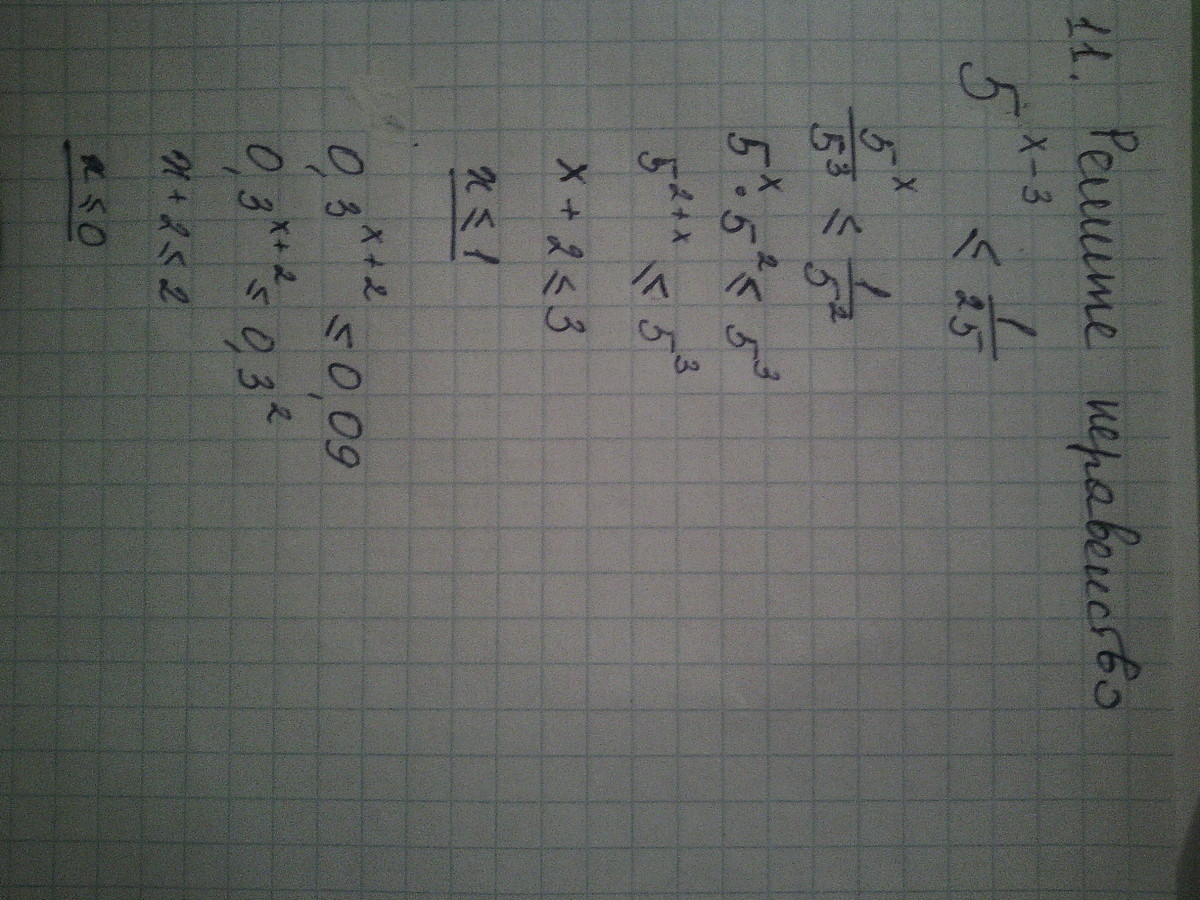 11. Решите неравенство
5^{x-3} ≤ 1/25
5^x/5^3 ≤ 1/5^2
5^x · 5^2 ≤ 5^3
5^{2+x} ≤ 5^3
x + 2 ≤ 3
x ≤ 1
0,3^{x+2} ≤ 0,09
0,3^{x+2} ≤ 0,3^2
x + 2 ≤ 2
x ≤ 0